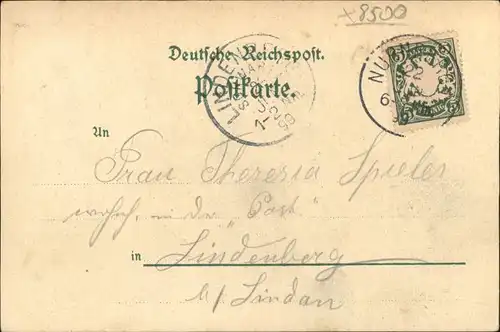 +8500
Deutsche Reichspost.
Postkarte.
LINDEN
1-2 NM.
99
NURN
5 5
An
Frau Theresia Spieler
wohnh. in der „Post“
in Lindenberg
b/ Lindau